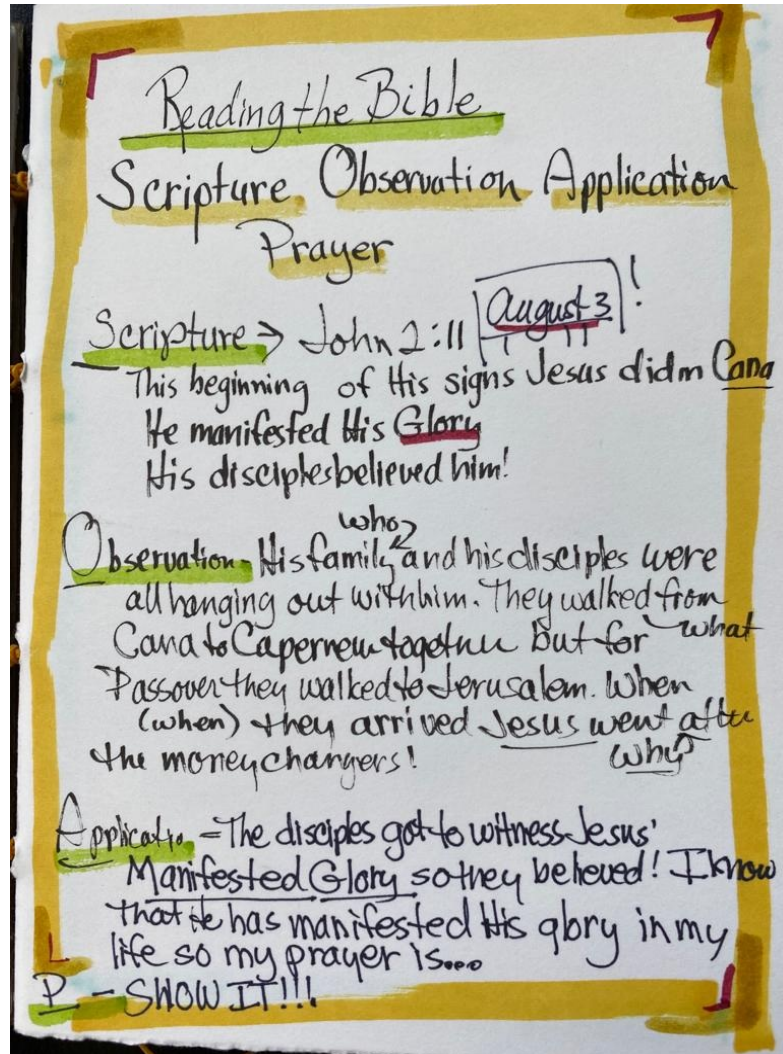 Reading the Bible
Scripture Observation Application
Prayer
August 3 !
Scripture → John 2:11
This beginning of His signs Jesus did in Cana
He manifested His Glory
His disciples believed him!
who?
Observation - His family and his disciples were
all hanging out with him. They walked from
Cana to Capernew together but for what
Passover they walked to Jerusalem. When
(when) they arrived Jesus went after
the moneychangers! why?
Applicatio = The disciples got to witness Jesus'
Manifested Glory so they believed! I know
that He has manifested His glory in my
life so my prayer is...
P - SHOW IT!!!